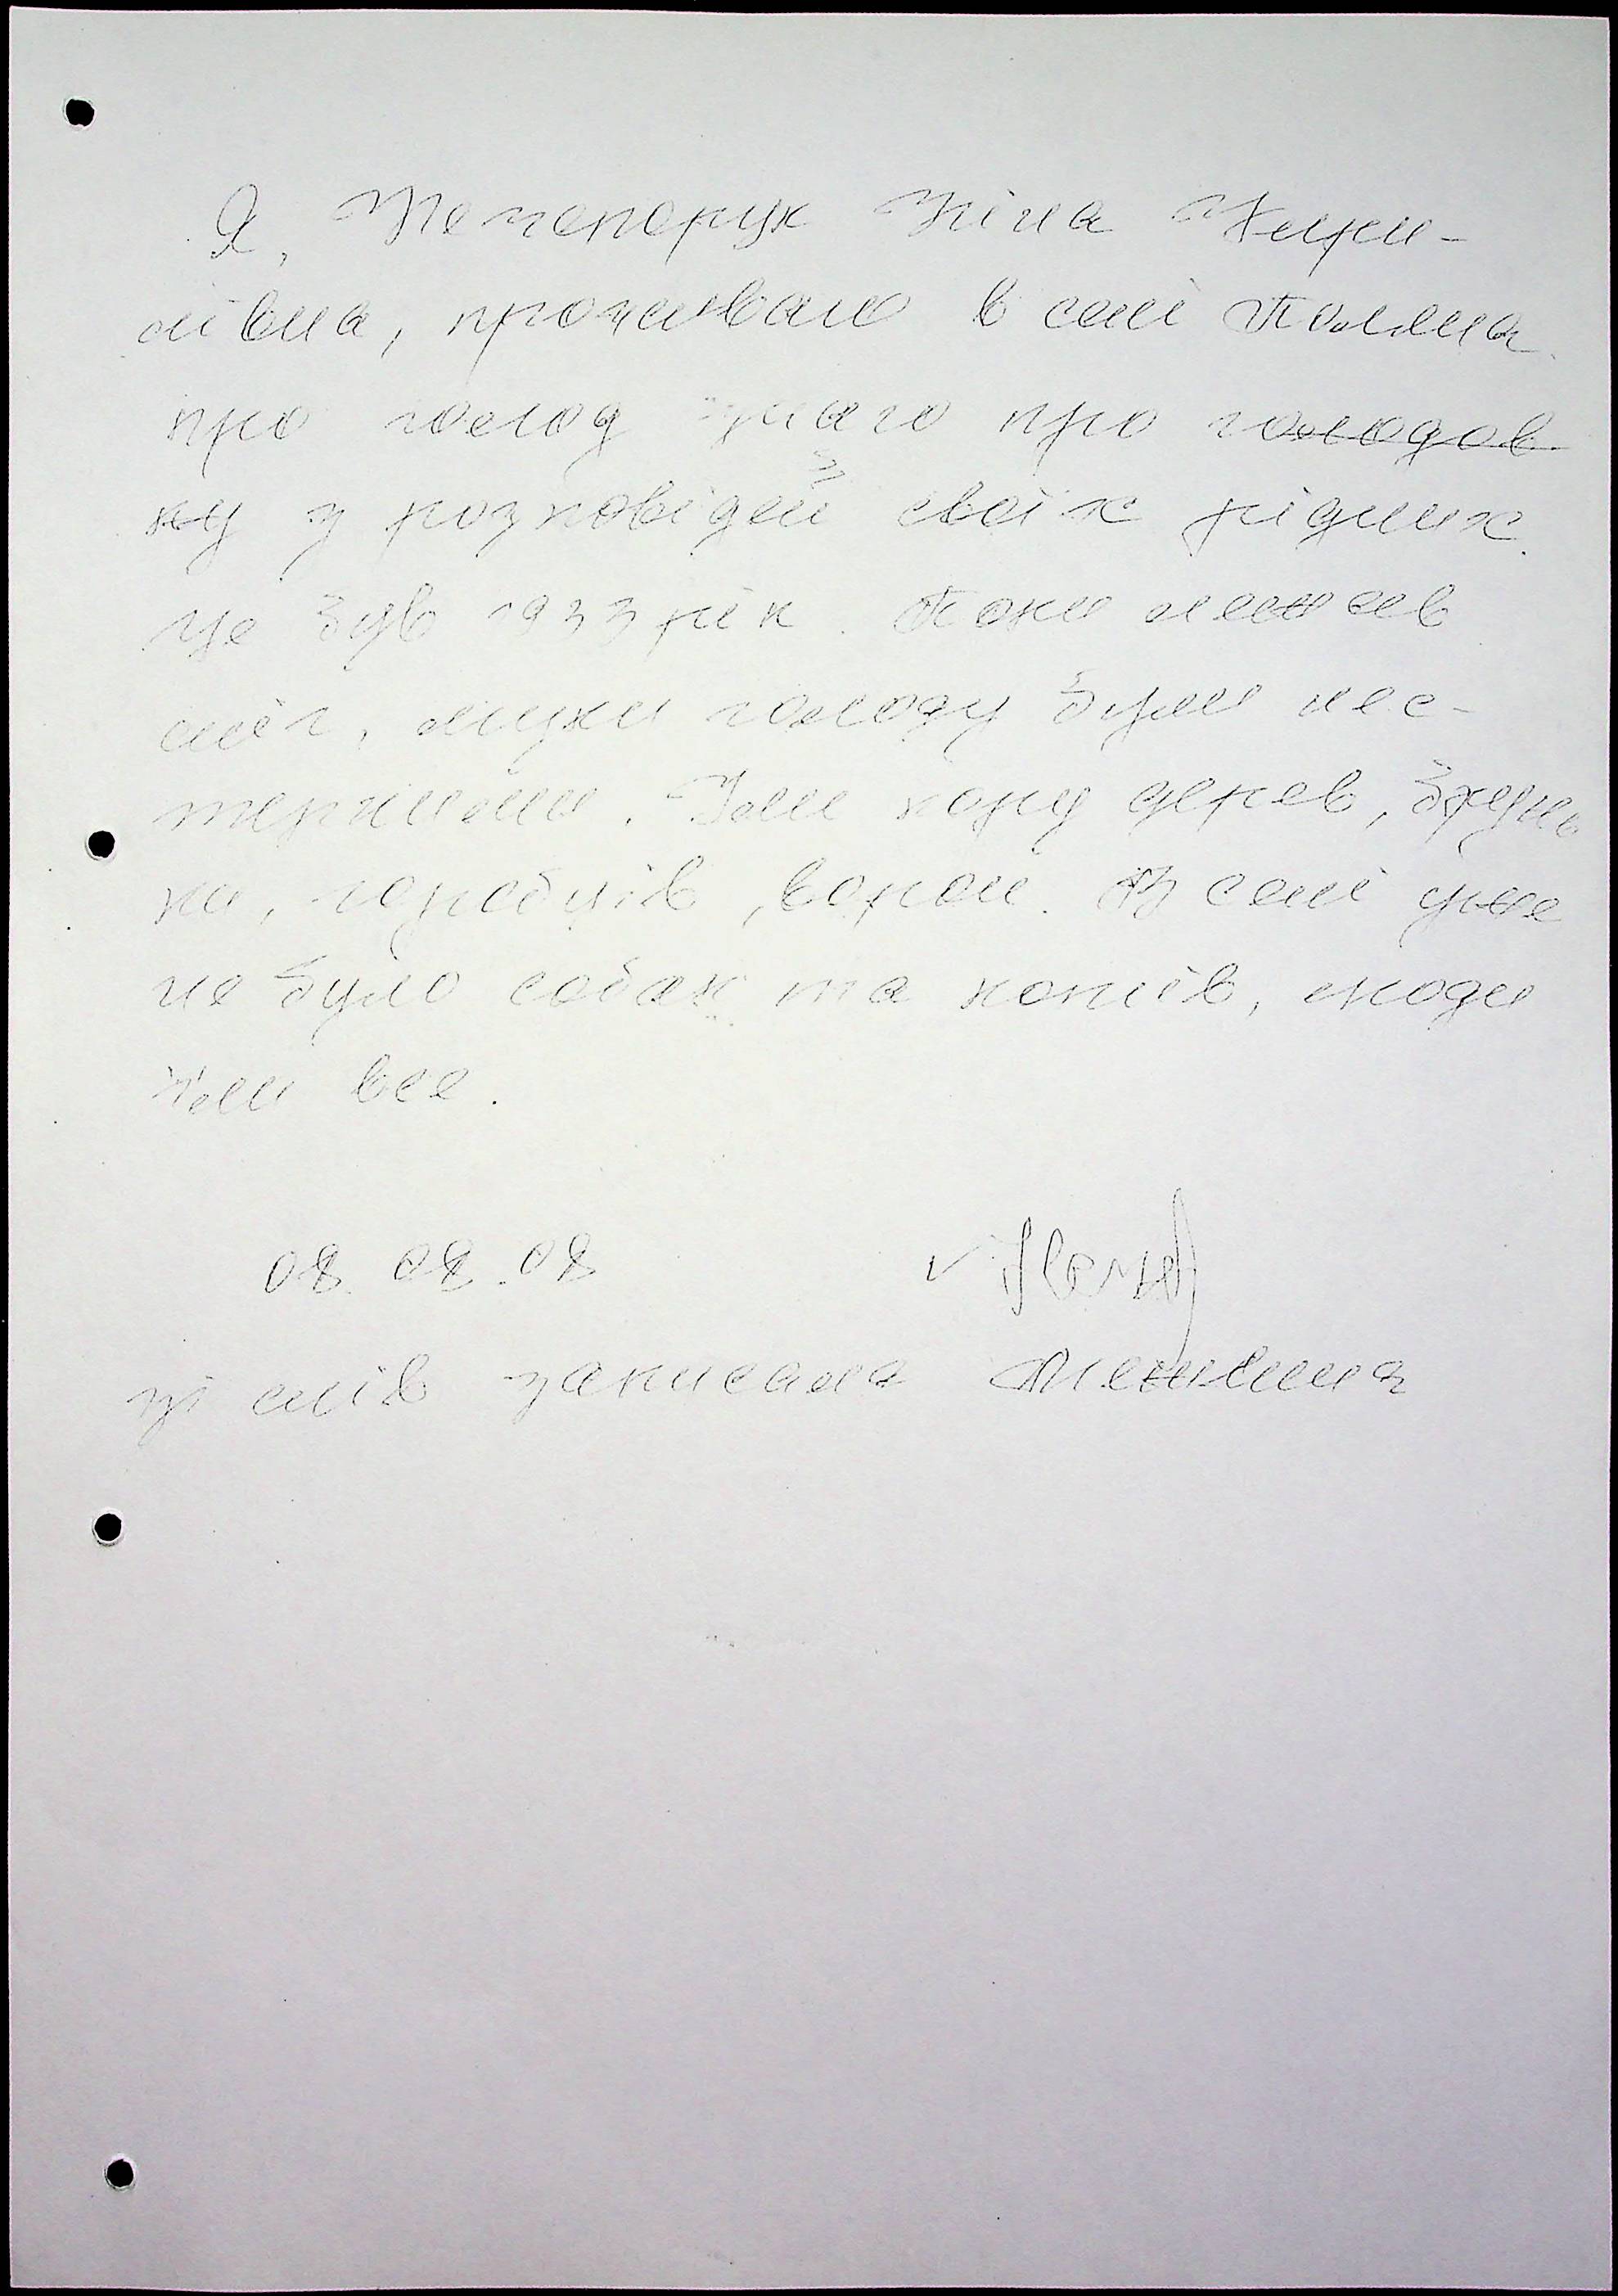 Я, Печенорук Ніна Кири-
лівна, проживаю в селі Поляна
про голод знаю про голодов
ку з розповідей своїх рідних.
це був 1933 рік. Поки лежав
сніг, муки голоду були нес-
терпними. Їли кору дерев, брунь
ки, горобців, ворон. В селі уже
не було собак та котів, люди
їли все.
08.08.08
зі слів записала